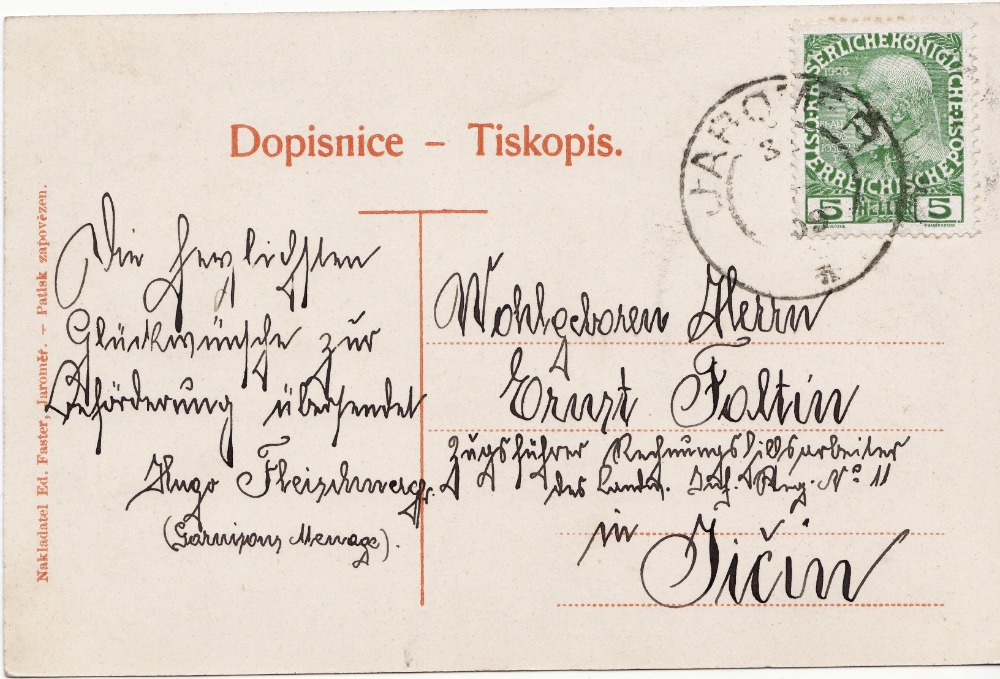 Dopisnice – Tiskopis.
KAISERLICHEKÖNIGLICHE
ÖSTERREICHISCHE POST
1908
5 Heller 5
JAROMĚŘ
Nakladatel Ed. Faster, Jaroměř. – Patisk zapovězen.
Die herzlichsten
Glückwünsche zur
Beförderung übersendet
Hugo
(Garnisons Menage).
Wohlgeboren Herrn
Ernst Foltin
Zugsführer Rechnungshilfsarbeiter
des Landw. Inf. Reg. No 11
in
Jičin